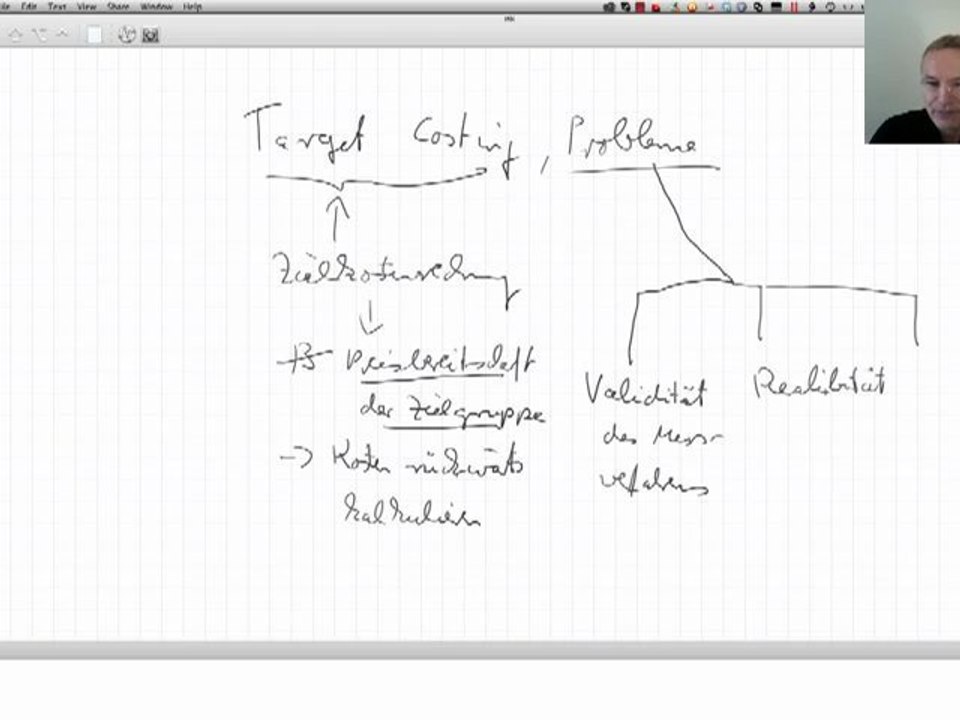 File Edit Text View Share Window Help
Target Costing, Probleme
Zielkostenrechnung
Preisbereitschaft
der Zielgruppe
→ Kosten rückwärts
kalkulieren
Validität
des Mess-
verfahrens
Realibität